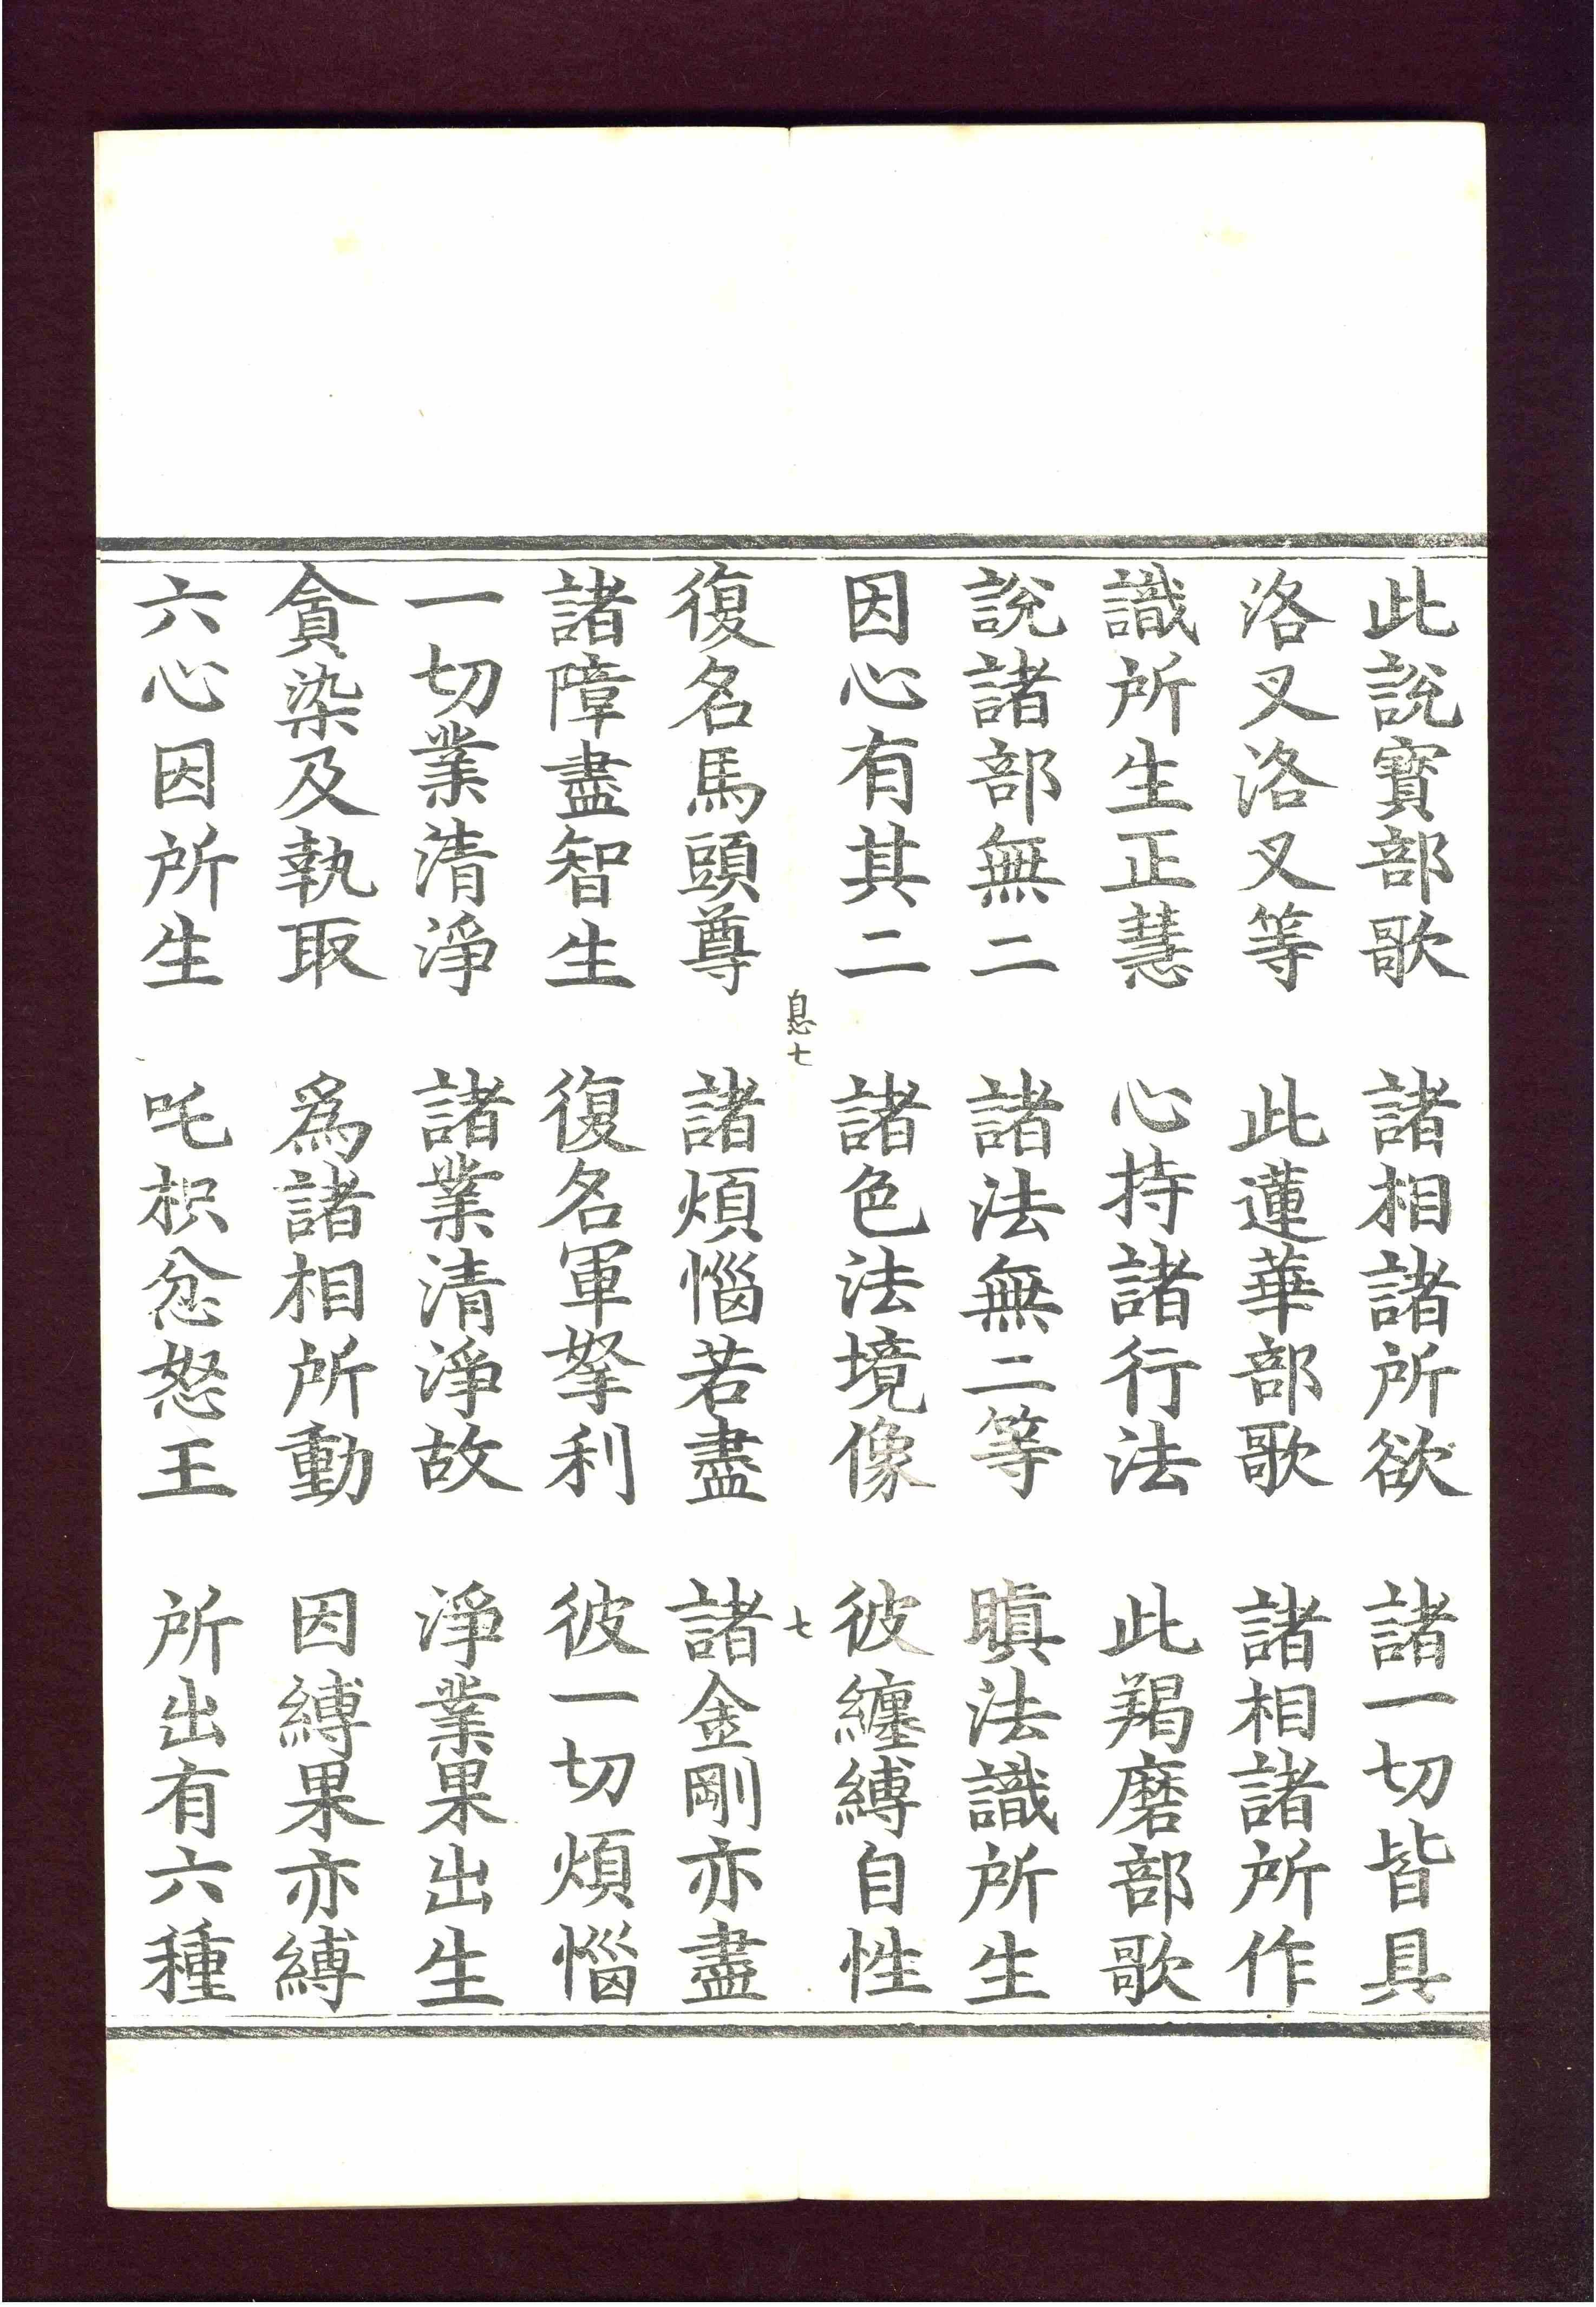 此說寶部歌　諸相諸所欲　諸一切皆具
洛叉洛叉等　此蓮華部歌　諸相諸所作
識所生正慧　心持諸行法　此羯磨部歌
說諸部無二　諸法無二等　瞋法識所生
因心有其二　諸色法境像　彼纏縛自性
息七　七
復名馬頭尊　諸煩惱若盡　諸金剛亦盡
諸障盡智生　復名軍拏利　彼一切煩惱
一切業清淨　諸業清淨故　淨業果出生
貪染及執取　爲諸相所動　因縛果亦縛
六心因所生　吒枳忿怒王　所出有六種